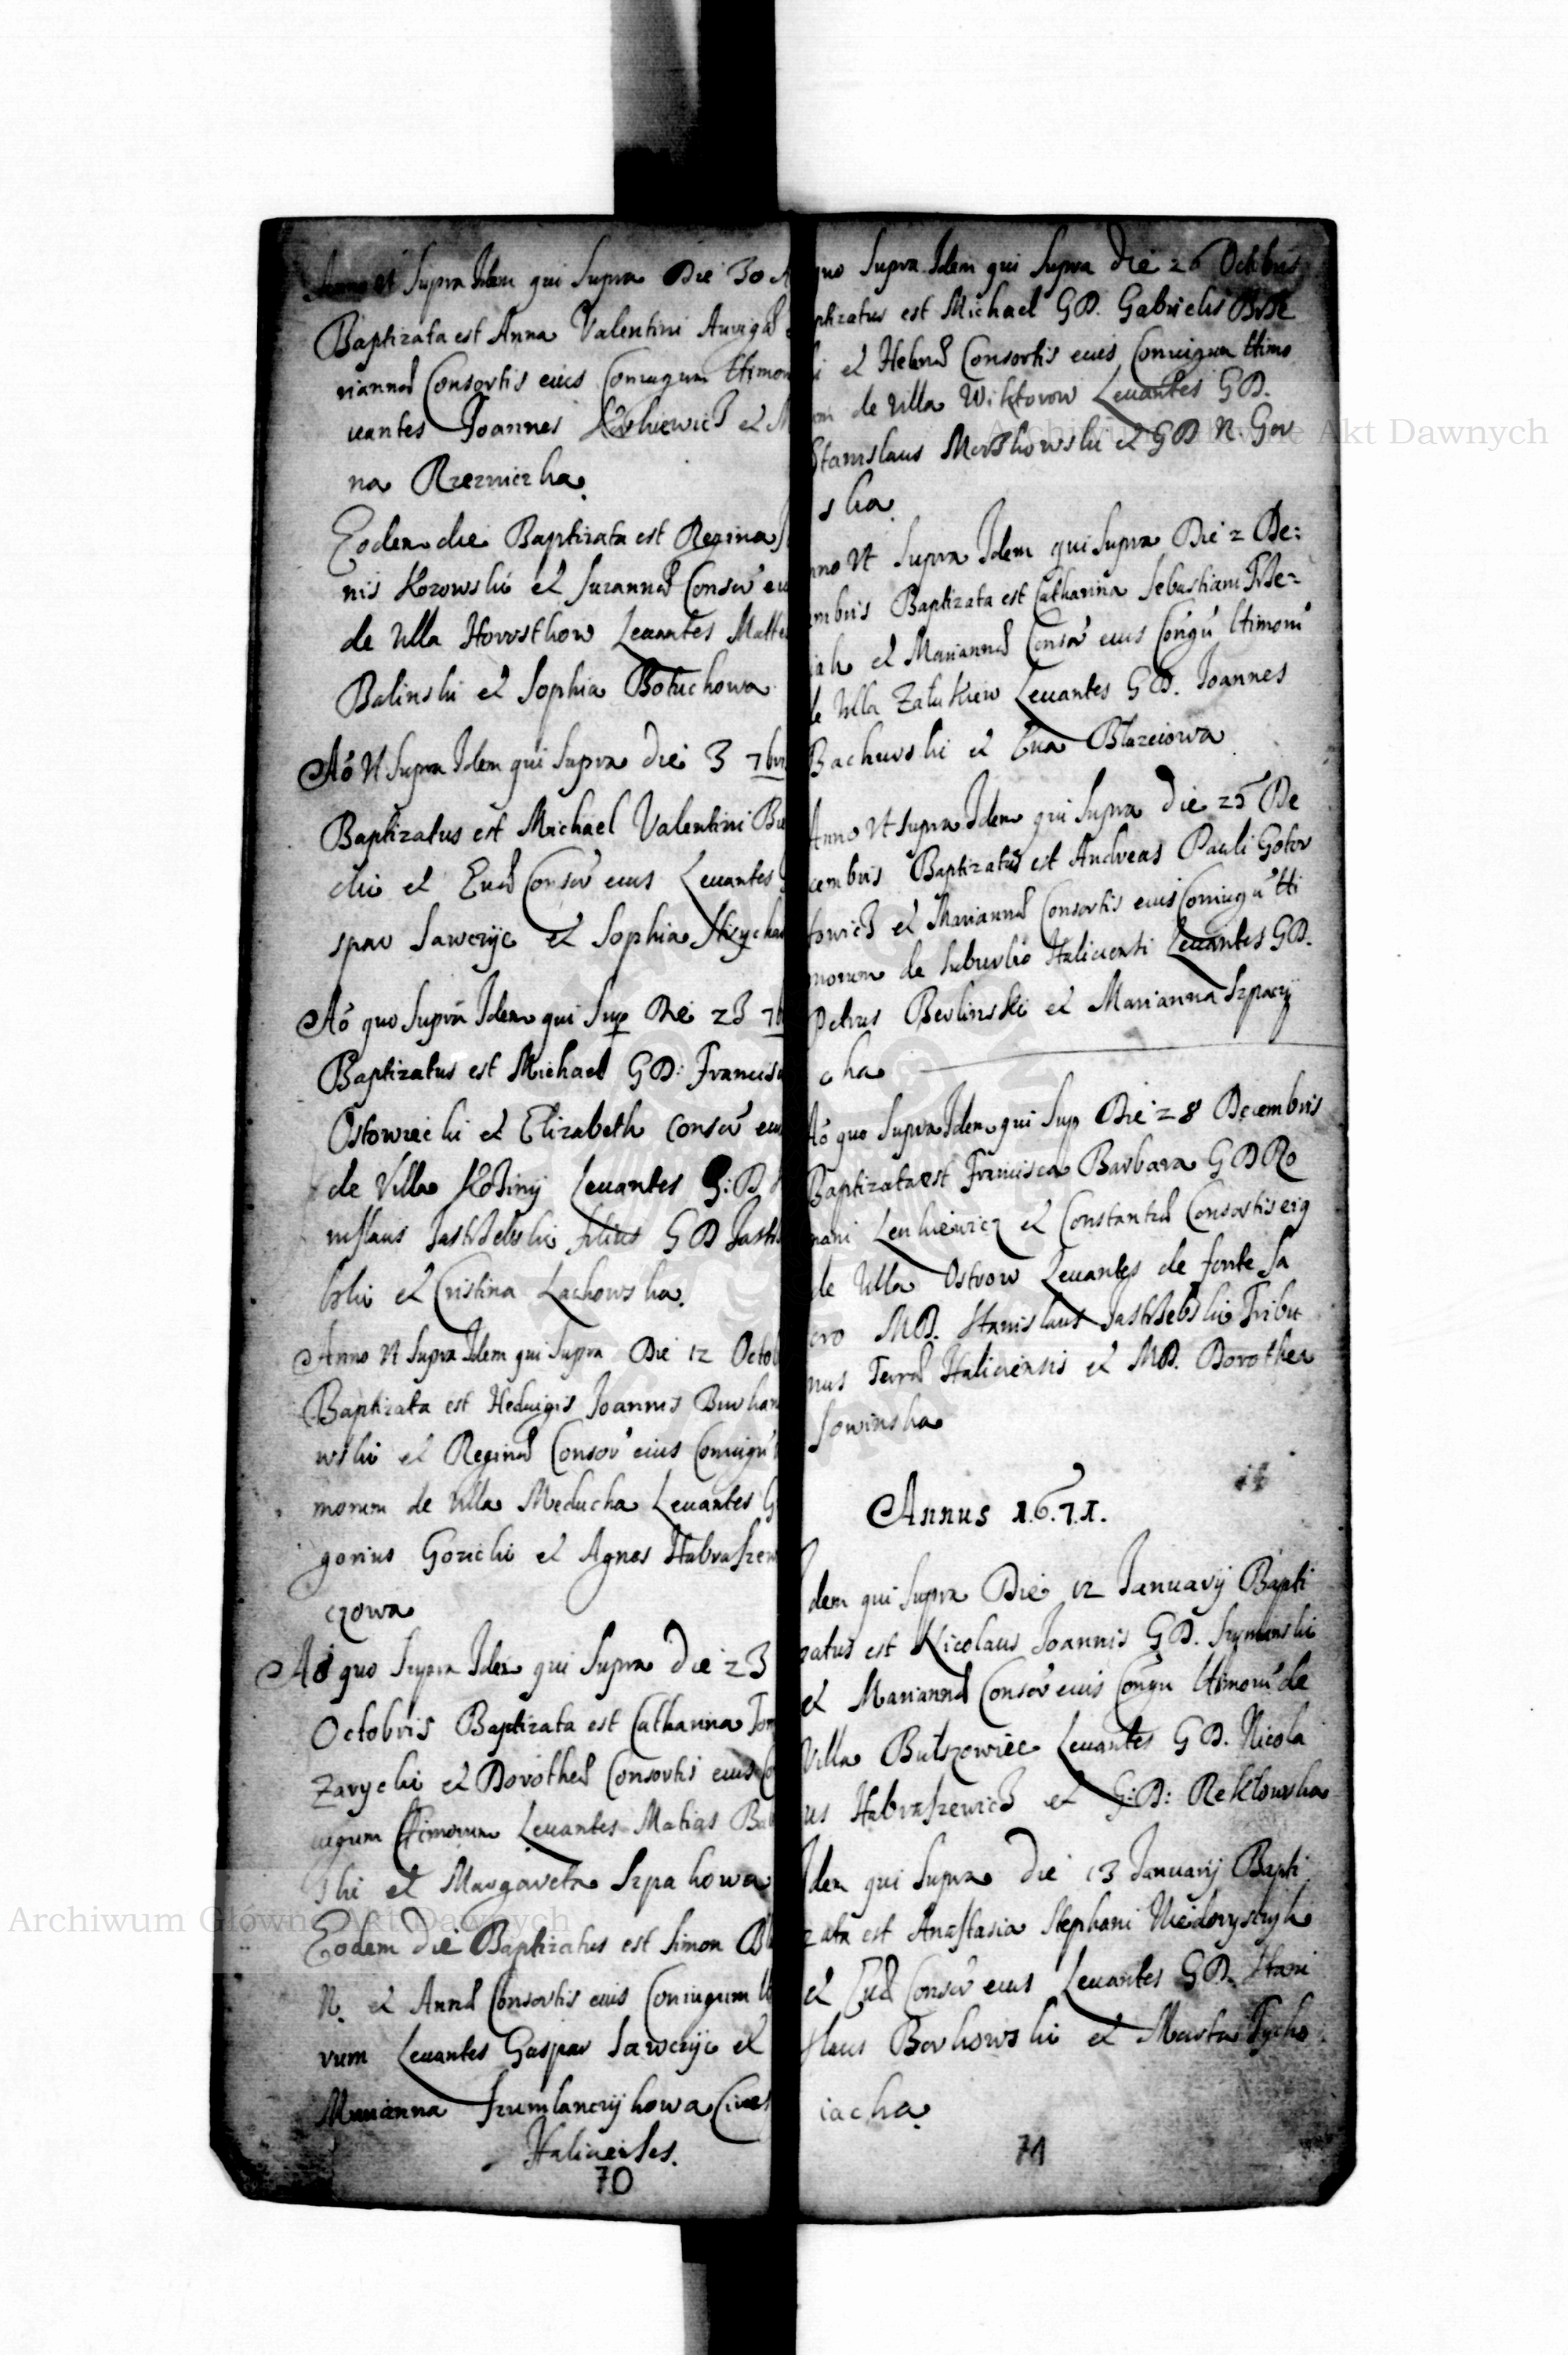 Anno Vt Supra Idem qui Supra Die 30
Baptizata est Anna Valentini Aurigae
rianna Consortis eius Coniugum ttimor
uantes Joannes et
na Rzeznicka
Eodem die Baptizata est Regina
nis Kozowski et Suzanna Conso' eiu
de Villa Leuantes Matte
Balinski et Sophia Botuchowa
Aó Vt Supra Idem qui Supra die 3 7bri
Baptizatus est Michael Valentini
cki et Eua Conso' eius Leuantes
spar Sawczyc et Sophia
Aó quo Supra Idem qui Sup Die 23 7b
Baptizatus est Michael GD: Francisci
Ostowiecki et Elizabeth Conso' eiu
de Villa Leuantes G:D
nislaus Jastrzebski filius GD Jastrz
bski et Cristina Lachowska
Anno Vt Supra Idem qui Supra Die 12 Octob
Baptizata est Heduigis Joannis Burkan
wski et Regina Conso' eius Coniugu'
morum de Villa Meducha Leuantes G
gorius Gorzicki et Agnes Habraszew
czowa
Aó quo Supra Idem qui Supra die 23
Octobris Baptizata est Catharina Tom
Zarycki et Dorothea Consortis eius Co
iugum ttimorum Leuantes Matias Bab
ski et Margareta Szpakowa
Eodem die Baptizatus est Simon
N. et Anna Consortis eius Coniugum tti
rum Leuantes Gaspar Sawczyc et
Marianna Szumlanczykowa Ciues
Halicienses.
70
quo Supra Idem qui Supra die 26 Octobris
ptizatus est Michael GD. Gabrielis
i et Helena Consortis eius Coniugum ttimo
de Villa Wiktorow Leuantes GD.
Stanislaus et GD N. Gor
ska
nno Vt Supra Idem qui Supra Die 2 De:
embris Baptizata est Catharina Sebastiani
iak et Marianna Conso' eius Co'ugu' ttimoru'
de Villa Załukiew Leuantes GD. Joannes
Bachurski et Eua Błazeiowa
Anno Vt supra Idem qui Supra die 25 De
cembris Baptizatus est Andreas Pauli Gotor
towicz et Marianna Consortis eius Coniugu' tti
morum de Suburbio Haliciensi Leuantes GD.
Petrus Berlinski et Marianna Szpaczy
cka
Aó quo Supra Idem qui Sup Die 28 Decembris
Baptizata est Francisca Barbara GD Ro
mani Lenkiewicz et Constantia Consortis eig
de Villa Ostrow Leuantes de fonte Sa
cro MD. Stanislaus Jastrzebski Tribu
nus Terrae Haliciensis et MD. Dorothea
Sowinska
Annus 1.6.7.1.
Idem qui Supra Die 12 Januarij Bapti
zatus est Nicolaus Joannis GD. Szyminski
et Marianna Conso' eius Co'ugu ttimoru' de
Villa Bułszowiec Leuantes GD. Nicola
us Habraszewicz et G:D: Rektowska
Idem qui Supra die 13 Januarij Bapti
zata est Anastasia Stephani
et Eua Conso' eius Leuantes GD. Stani
slaus Borkowski et Marta Tycho
iacka
71
Archiwum Główne Akt Dawnych
Archiwum Główne Akt Dawnych